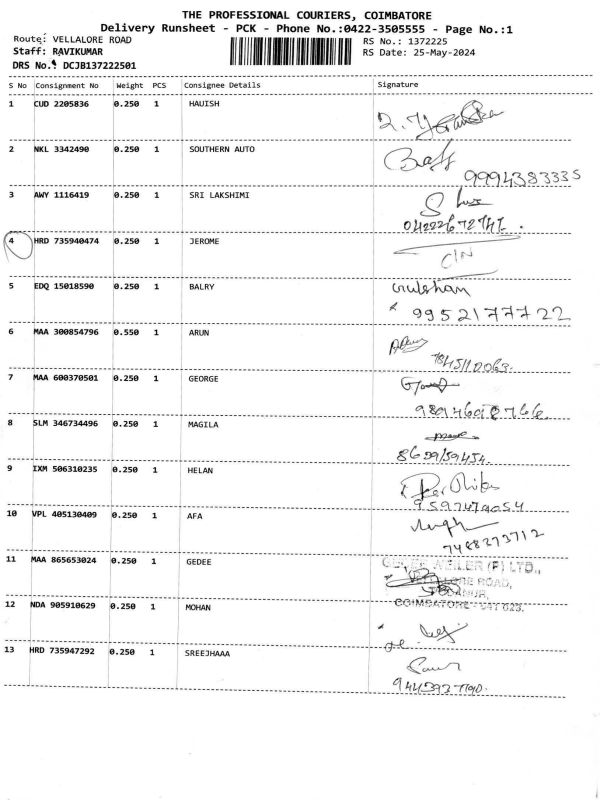 THE PROFESSIONAL COURIERS, COIMBATORE
Delivery Runsheet - PCK - Phone No.:0422-3505555 - Page No.:1
Route: VELLALORE ROAD
RS No.: 1372225
Staff: RAVIKUMAR
RS Date: 25-May-2024
DRS No. DCJB137222501
S No Consignment No Weight PCS Consignee Details Signature
1 CUD 2205836 0.250 1 HAUISH
2 NKL 3342490 0.250 1 SOUTHERN AUTO
9994383335
3 AWY 1116419 0.250 1 SRI LAKSHIMI
4 HRD 735940474 0.250 1 JEROME
5 EDQ 15018590 0.250 1 BALRY Gulshan
9952177722
6 MAA 300854796 0.550 1 ARUN
7 MAA 600370501 0.250 1 GEORGE
8 SLM 346734496 0.250 1 MAGILA
9 IXM 506310235 0.250 1 HELAN
10 VPL 405130409 0.250 1 AFA
7488273712
11 MAA 865653024 0.250 1 GEDEE GEDEE WEILER (P) LTD.,
ROAD,
COIMBATORE - 641 023.
12 NDA 905910629 0.250 1 MOHAN
13 HRD 735947292 0.250 1 SREEJHAAA